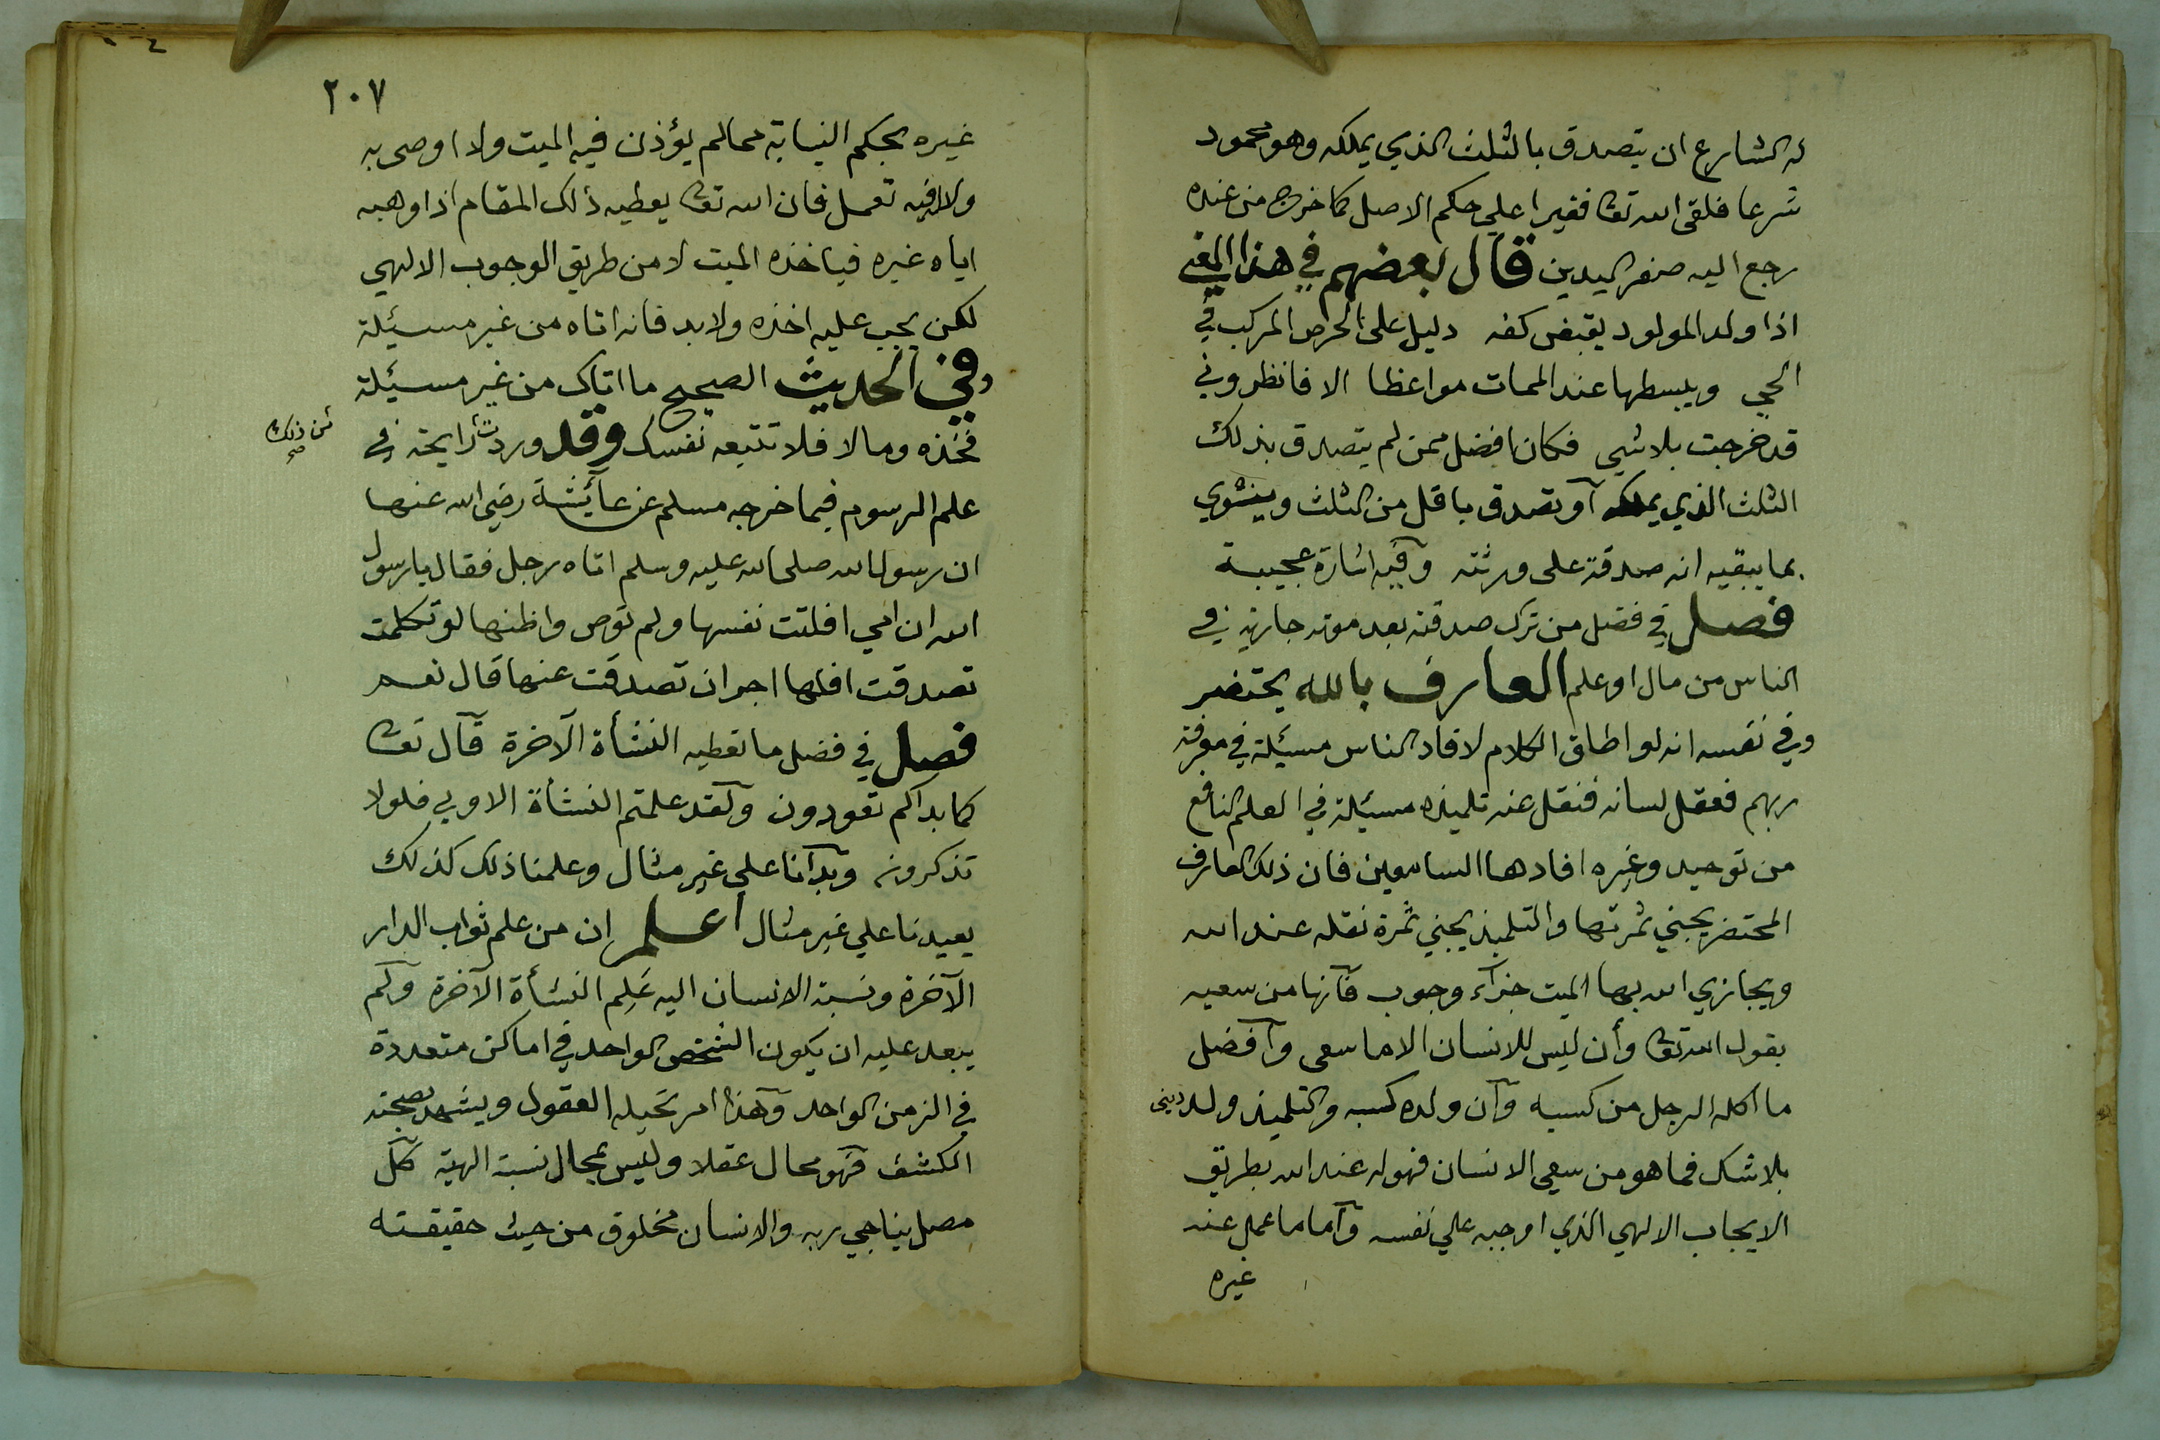 له الشارع ان يتصدق بالثلث الذي يملكه وهو محمود
شرعا فلقى الله تعا فقيرا على حكم الاصل كما خرج من عنده
رجع اليه صفر اليدين قال بعضهم في هذا المعني
اذا ولد المولود يقبض كفه دليل على الحرص المركب في
الحي ويبسطها عند الممات مواعظا الا فانظروني
قد خرجت بلا شي فكان افضل ممن لم يتصدق بذلك
الثلث الذي يملكه او تصدق باقل من الثلث وينوي
بما يبقيه انه صدقة على ورثته وفيه اشارة عجيبة
فصل في فضل من ترك صدقة بعد موته جارية في
الناس من مال او علم العارف بالله يحتضر
وفي نفسه انه لو اطاق الكلام لافاد الناس مسئلة في معرفة
ربهم فعقل لسانه فنقل عنه تلميذه مسئلة في العلم النافع
من توحيد وغيره افادها السامعين فان ذلك العارف
المحتضر يجني ثمرتها والتلميذ يجني ثمرة نقله عند الله
ويجازي الله بها الميت جزآء وجوب فانها من سعيه
يقول الله تعا وأن ليس للانسان الا ما سعى وافضل
ما اكله الرجل من كسبه وان ولده كسبه والتلميذ ولد ديني
بلا شك فما هو من سعي الانسان فهو له عند الله بطريق
الايجاب الالهي الذي اوجبه علي نفسه واما ما عمل عنه
غيره
٢٠٧
غيره بحكم النيابة مما لم يؤذن فيه الميت ولا اوصى به
ولا له فيه تعمل فان الله تعا يعطيه ذلك المقام اذا وهبه
اياه غيره فياخذه الميت لا من طريق الوجوب الالهي
لكن يجب عليه اخذه ولا بد فانه اتاه من غير مسئلة
وفي الحديث الصحيح ما اتاك من غير مسئلة
فخذه وما لا فلا تتبعه نفسك وقد وردت رايحة في
من ذلك صح
علم الرسوم فيما خرجه مسلم عن عآئشة رضي الله عنها
ان رسول الله صلى الله عليه وسلم اتاه رجل فقال يا رسول
الله ان امي افلتت نفسها ولم توص واظنها لو تكلمت
تصدقت افلها اجر ان تصدقت عنها قال نعم
فصل في فضل ما تعطيه النشأة الآخرة قال تعا
كما بداكم تعودون ولقد علمتم النشأة الاولي فلولا
تذكرون وبدآنا علي غير مثال وعلمنا ذلك كذلك
يعيدنا علي غير مثال اعلم ان من علم ثواب الدار
الآخرة ونسبة الانسان اليه عَلِم النشأة الآخرة ولم
يبعد عليه ان يكون الشخص الواحد في اماكن متعددة
في الزمن الواحد وهذا امر تحيله العقول ويشهد بصحته
الكشف فهو محال عقلا وليس بمحال نسبة الهية كل
مصل يناجي ربه والانسان مخلوق من حيث حقيقته